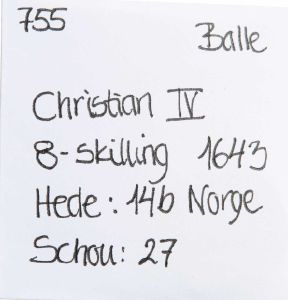 755
Balle
Christian IV
8-skilling 1643
Hede: 14b Norge
Schou: 27